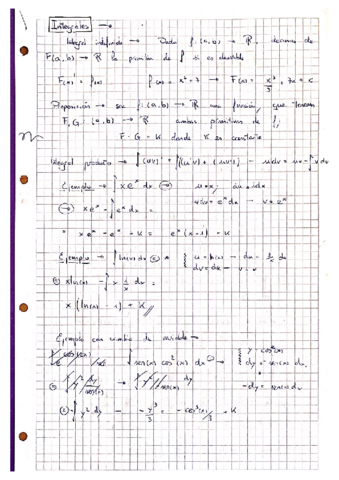 Integrales →
Integral indefinida → Dada f: (a,b) → ℝ, decimos de
F(a,b) → ℝ la primitiva de f si es derivable
F'(x) = f(x) f(x) = x² - 7 → F(x) = x³/3 + 7x + c
Proposición → sea f: (a,b) → ℝ una función, que tenemos
F, G: (a,b) → ℝ ambas primitivas de f,
F - G = K donde K es constante
Integral producto → ∫(uv)' = ∫(u'v) + (uv') → udv = uv - ∫v du
Ejemplo → ∫ x eˣ dx → u = x; du = 1dx
→ x eˣ - ∫ eˣ dx = v dv = eˣ dx → v = eˣ
= x eˣ - eˣ + K = eˣ (x-1) + K
Ejemplo → ∫ ln(x) dx = { u = ln(x) → du = 1/x dx
dv = dx → v = x
x ln(x) - ∫ x 1/x dx =
x (ln(x) - 1) + K //
Ejemplo con cambio de variable →
∫ sen(x) cos²(x) dx → { y = cos(x)
dy = -sen(x) dx
-dy = sen(x) dx
- ∫ y² dy → - y³/3 = - cos³(x)/3 + K